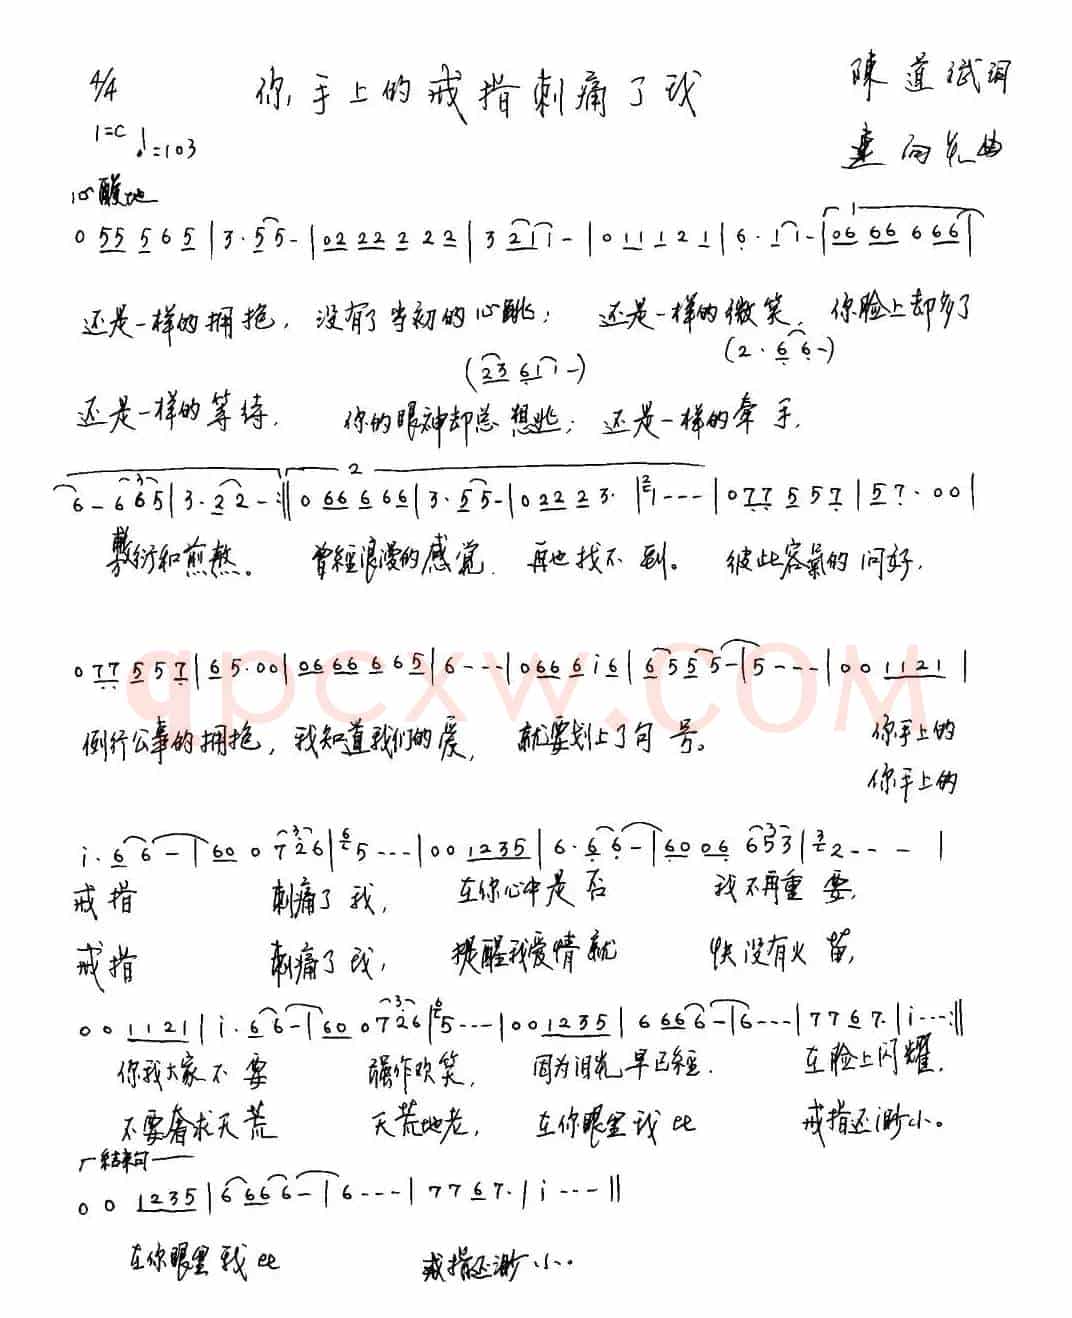 4/4 你手上的戒指刺痛了我 陳道斌詞
1=C ♩=103 連向先曲
心酸地
0 55 5 6 5 | 3· 5 5 - | 02 22 2 2 2 | 3 2 1 1 - | 0 1 1 1 2 1 | 6· 1 1 - | 06 66 6 66 |
还是一样的拥抱，没有了当初的心跳；还是一样的微笑，你脸上却多了
(23 61 1 -) (2· 6 6 -)
还是一样的等待，你的眼神却总想逃；还是一样的牵手，
6 - 6 6 5 | 3· 2 2 - :‖ 0 66 6 66 | 3· 5 5 - | 0 2 2 2 3· | 2 1 - - - | 0 77 5 5 7 | 5 7· 0 0 |
敷衍和煎熬。曾經浪漫的感觉，再也找不到。彼此客氣的问好，
0 77 5 5 7 | 6 5· 0 0 | 06 66 6 6 5 | 6 - - - | 0 66 6 i 6 | 6 5 5 5 - | 5 - - - | 0 0 1121 |
例行公事的拥抱，我知道我们的爱，就要划上了句号。你手上的
你手上的
i· 6 6 - | 60 0 726 | 6 5 - - - | 0 0 1235 | 6· 6 6 - | 60 06 653 | 3 2 - - - |
戒指 刺痛了我，在你心中是否 我不再重要，
戒指 刺痛了我，提醒我爱情就 快没有火苗，
0 0 1121 | i· 6 6 - | 60 0 726 | 6 5 - - - | 0 0 1235 | 6 66 6 - | 6 - - - | 7 7 6 7· | i - - - :‖
你我大家不要 强作欢笑，因为泪光早已經 在脸上闪耀，
不要奢求天荒 天荒地老，在你眼里我比 戒指还渺小。
结束句
0 0 1235 | 6 66 6 - | 6 - - - | 7 7 6 7· | i - - - ‖
在你眼里我比 戒指还渺小。
qpcxw.COM